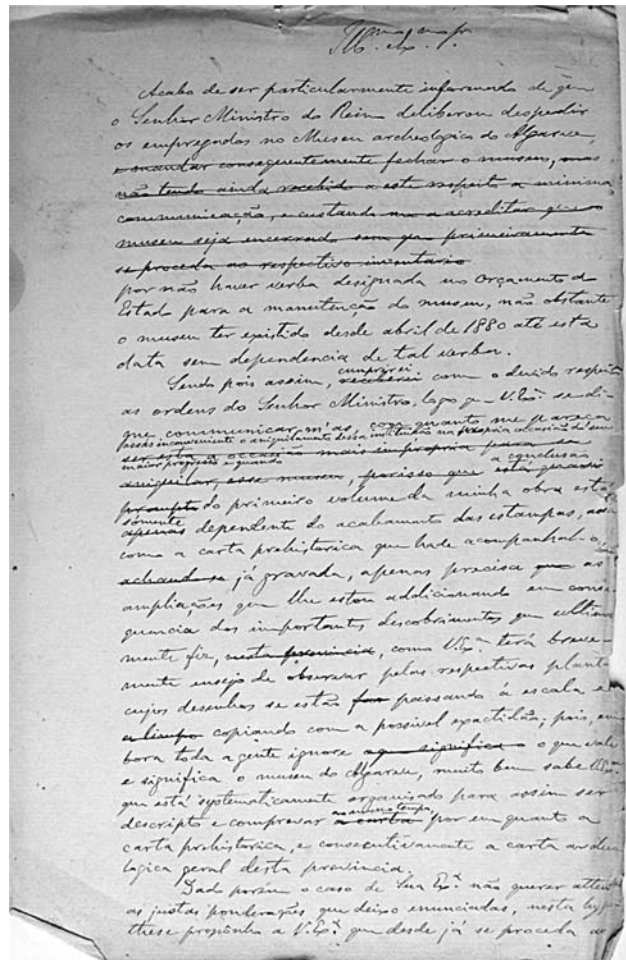 Ill.mo e Ex.mo Sr.
Acabo de ser particularmente informado de que
o Senhor Ministro do Reino deliberou despedir
os empregados no Museu archeologico do Algarve,
e mandar consequentemente fechar o museu, mas
não tendo ainda recebido a este respeito a minima
communicação, e custando-me a acreditar que o
museu seja encerrado sem que primeiramente
se proceda ao respectivo inventario
por não haver verba designada no Orçamento do
Estado para a manutenção do museu, não obstante
o museu ter existido desde abril de 1880 até esta
data sem dependencia de tal verba.
cumprirei
Sendo pois assim, receberei com o devido respeito
as ordens do Senhor Ministro, logo que V. Ex.ª se di-
gne communicar-m'as, com quanto me pareça
inconveniente o aniquilamento dessa instituição na propria occasião do seu
ser esta a occasião mais impropria para se
maior progresso e quando a conclusão
aniquilar esse museu, porisso que está quasi
prompto do primeiro volume da minha obra está
sómente
apenas dependente do acabamento das estampas, assim
como a carta prehistorica que hade acompanhal-o,
achando-se já gravada, apenas precisa que as
ampliações que lhe estou addicionando em conse-
quencia dos importantes descobrimentos que ultima-
mente fiz, nesta provincia, como V. Ex.ª terá breve-
mente ensejo de observar pelas respectivas plantas
cujos desenhos se estão passando á escala e
a limpo copiando com a possivel exactidão; pois, em-
bora toda a gente ignore o que significa o que vale
e significa o museu do Algarve, muito bem sabe V. Ex.ª
que está systematicamente organisado para assim ser
ao mesmo tempo,
descripto e comprovar a carta por em quanto a
carta prehistorica, e consecutivamente a carta archeo-
logica geral desta provincia.
Dado porém o caso de Sua Ex.ª não querer attender
as justas ponderações, que deixo enunciadas, nesta hypo-
these proponho a V. Ex.ª que desde já se proceda ao